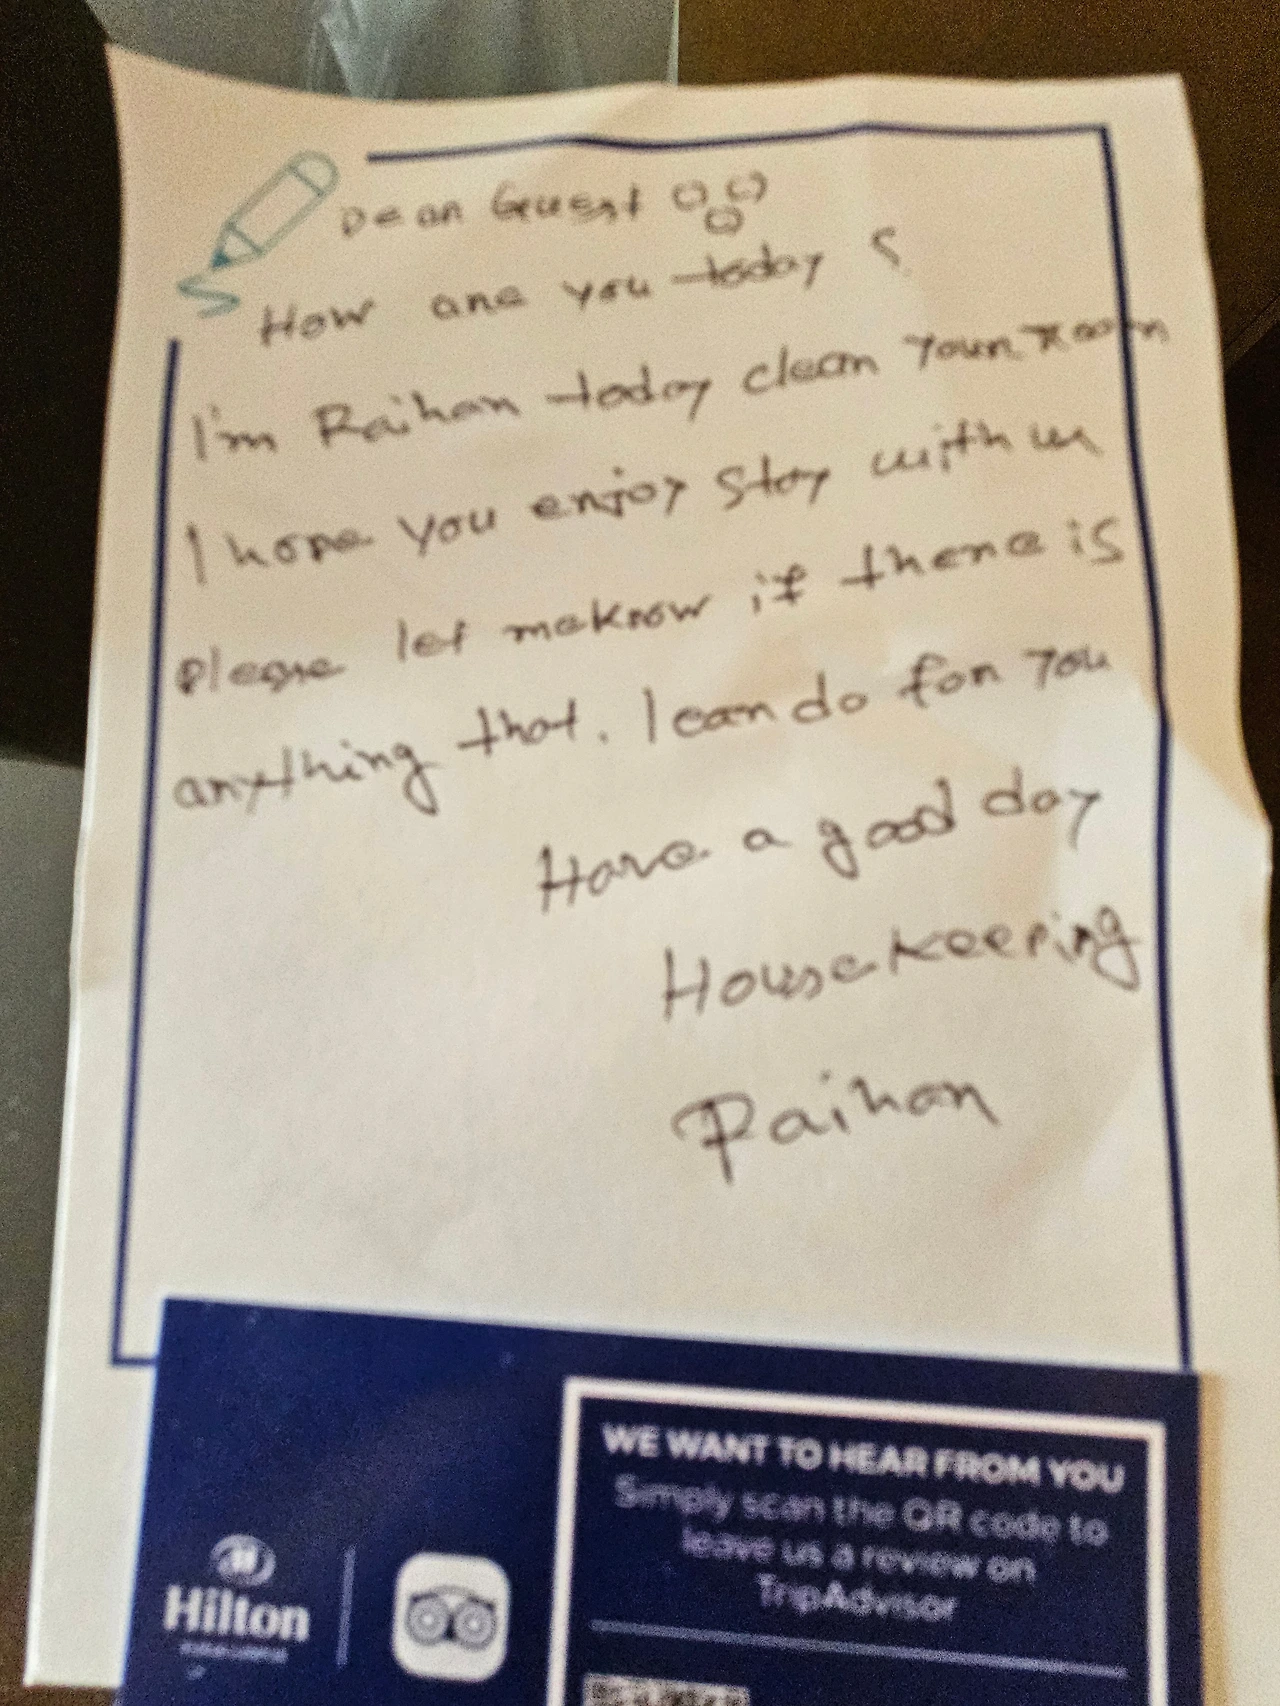 Dear Guest
How are you today ?
I'm Raihan today clean your room
I hope you enjoy stay with us
please let me know if there is
anything that. I can do for you
Have a good day
Housekeeping
Raihan
Hilton
WE WANT TO HEAR FROM YOU
Simply scan the QR code to
leave us a review on
TripAdvisor